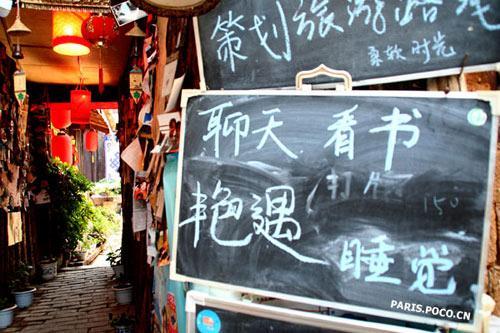 策划旅游路线
柔软时光
聊天 看书
艳遇
150
睡觉
PARIS.POCO.CN